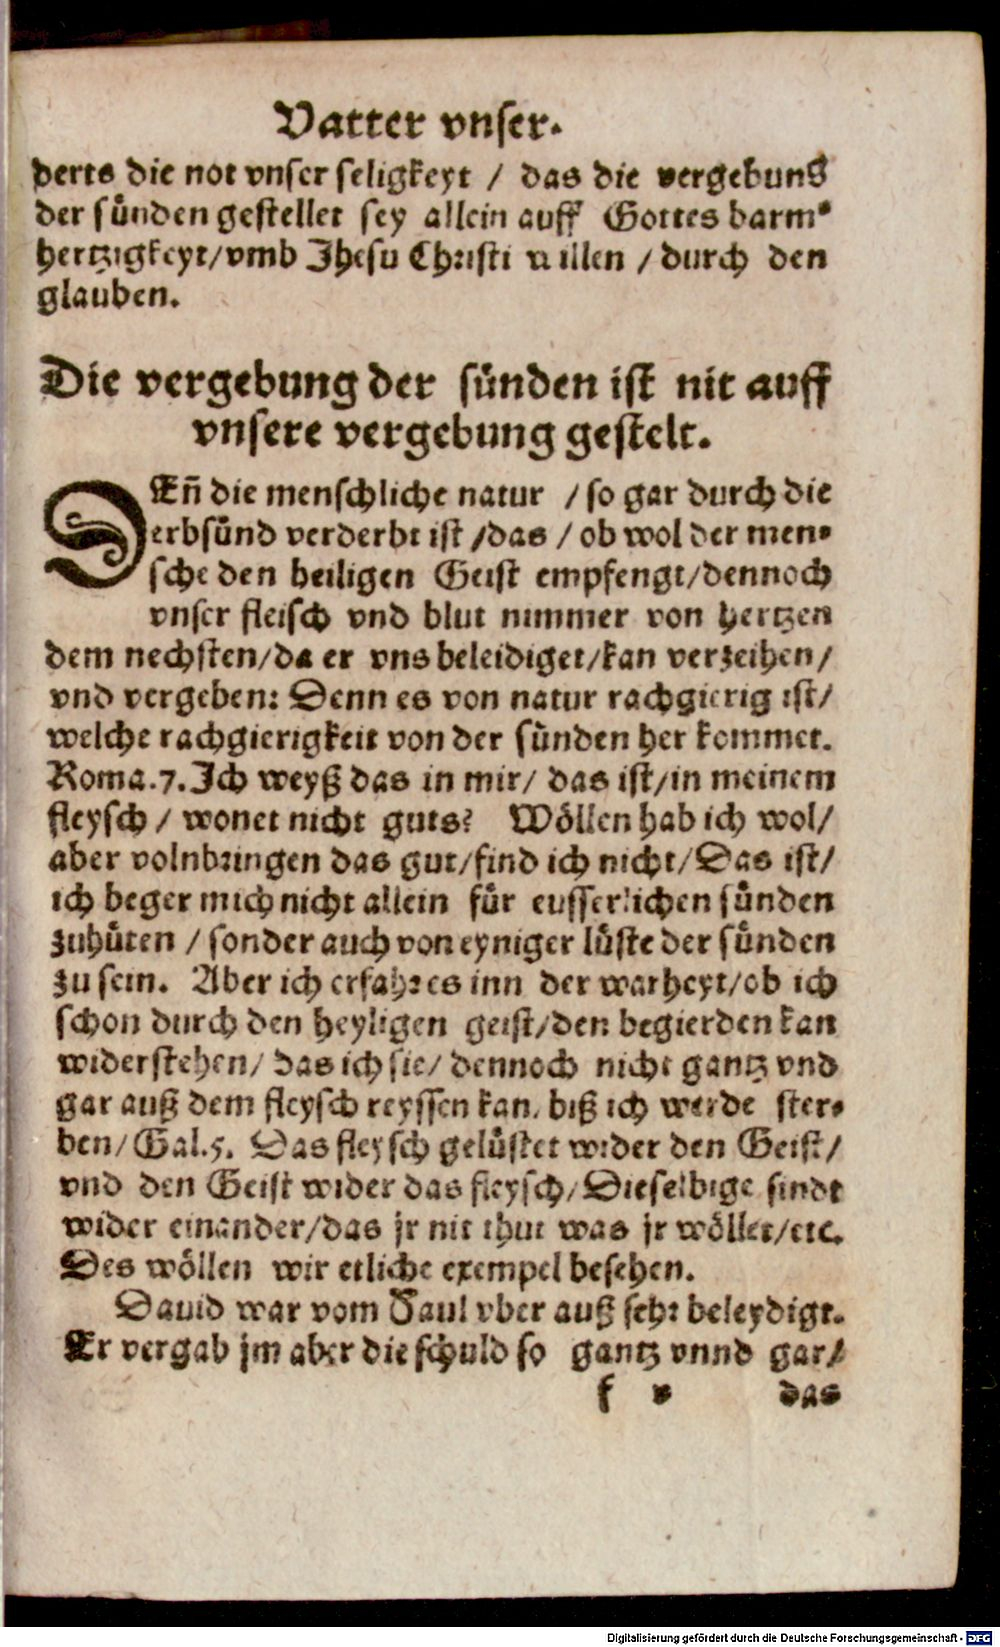 Vatter vnser.
derts die not vnser seligkeyt / das die vergebung
der sünden gestellet sey allein auff Gottes barm-
hertzigkeyt/vmb Jhesu Christi willen / durch den
glauben.
Die vergebung der sünden ist nit auff
vnsere vergebung gestelt.
DEñ die menschliche natur / so gar durch die
erbsünd verderbt ist /das / ob wol der men-
sche den heiligen Geist empfengt/dennoch
vnser fleisch vnd blut nimmer von hertzen
dem nechsten/da er vns beleidiget/kan verzeihen/
vnd vergeben: Denn es von natur rachgierig ist/
welche rachgierigkeit von der sünden her kommet.
Roma.7. Ich weyß das in mir/ das ist/in meinem
fleysch / wonet nicht guts? Wöllen hab ich wol/
aber volnbringen das gut/find ich nicht/Das ist/
ich beger mich nicht allein für eusserlichen sünden
zuhüten / sonder auch von eyniger lüste der sünden
zu sein. Aber ich erfahr es inn der warheyt/ob ich
schon durch den heyligen geist/den begierden kan
widerstehen/ das ich sie/ dennoch nicht gantz vnd
gar auß dem fleysch reyssen kan, biß ich werde ster-
ben/Gal.5. Das fleysch gelüstet wider den Geist/
vnd den Geist wider das fleysch/Dieselbige sindt
wider einander/das jr nit thut was jr wöllet/etc.
Des wöllen wir etliche exempel besehen.
Dauid war vom Saul vber auß sehr beleydigt.
Er vergab jm aber die schuld so gantz vnnd gar/
f v das
Digitalisierung gefördert durch die Deutsche Forschungsgemeinschaft - DFG